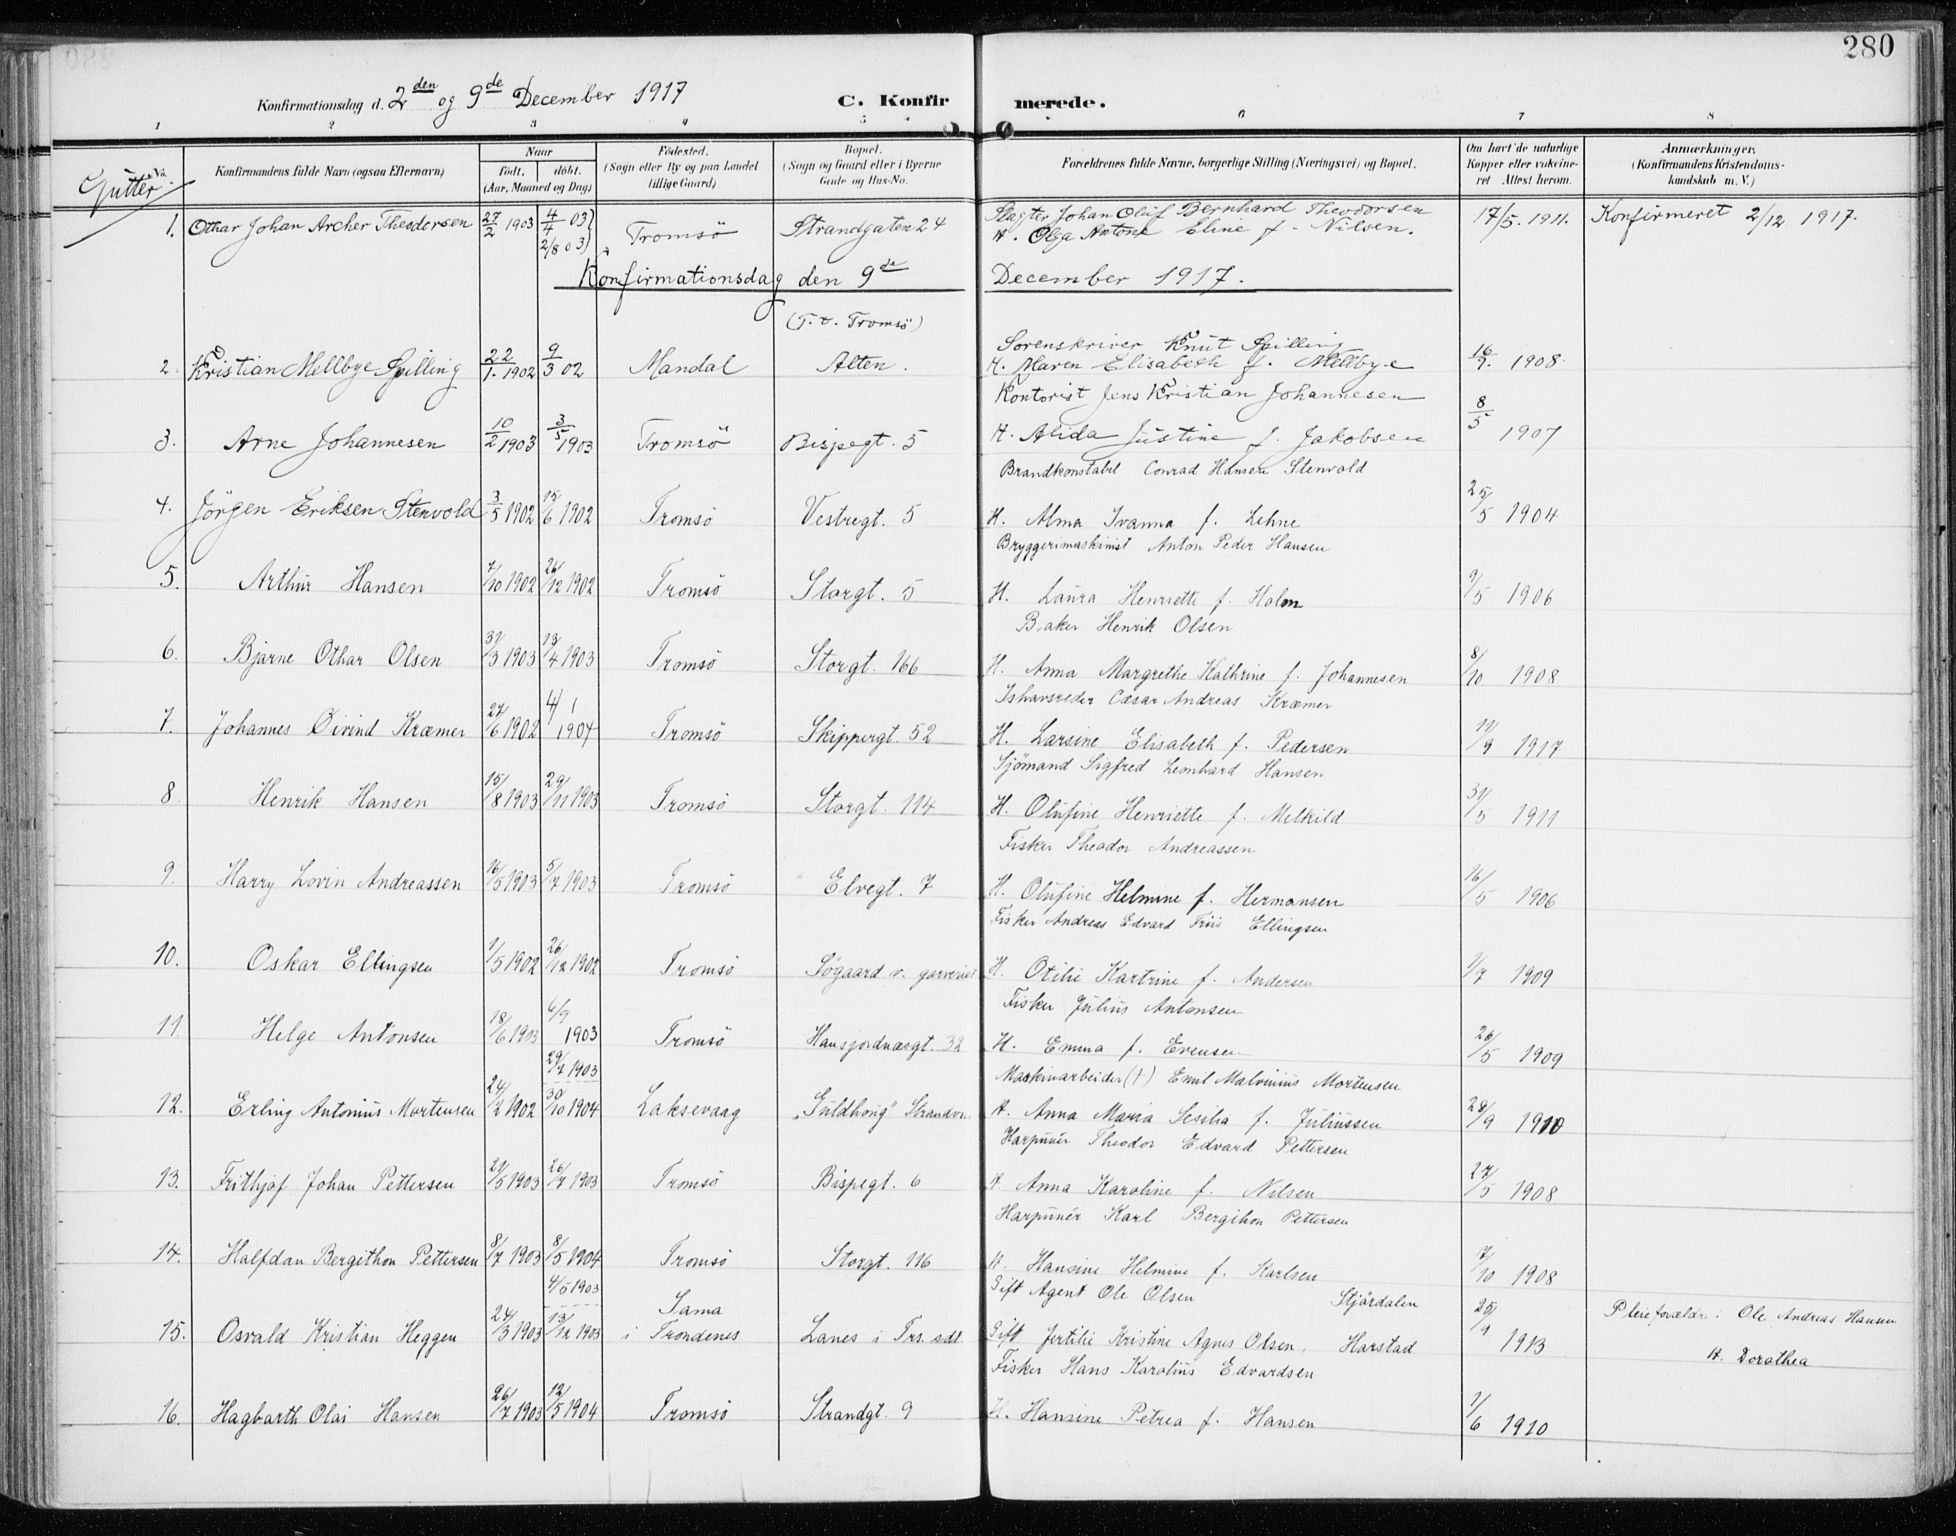 280
Konfirmationsdag d. 2den og 9de December 1917
C. Konfirmerede.
1 2 3 4 5 6 7 8
Gutter
No.
Konfirmandens fulde Navn (ogsaa Efternavn)
Naar
født. døbt.
(Aar, Maaned og Dag)
Fødested.
(Sogn eller By og paa Landet tillige Gaard)
Bopæl.
(Sogn og Gaard eller i Byerne Gade og Hus-No.
Forældrenes fulde Navne, borgerlige Stilling (Næringsvei) og Bopæl.
Om havt de naturlige Kopper eller vakcineret Attest herom.
Anmærkninger.
(Konfirmandens Kristendomskundskab m. V.)
Slagter Johan Oluf Bernhard Theodorsen
1. Othar Johan Archer Theodorsen 27/2 1903 4/4 03 2/8 03 Tromsö Strandgaten 24 H. Olga Antone Eline f. Nilsen. 17/5. 1911. Konfirmeret 2/12 1917.
Konfirmationsdag den 9de December 1917.
(T. t. Tromsö)
Sorenskriver Knut Spilling
2. Kristian Mellbye Spilling 22/1. 1902 9/3 02 Mandal Alten. H. Maren Elisabeth f. Mellbye 16/9. 1908
Kontorist Jens Kristian Johannesen
3. Arne Johannesen 10/2 1903 3/5 1903 Tromsö Bispegt. 5 H. Alida Justine f. Jakobsen 8/5 1907
Brandkonstabel Conrad Hansen Stenvold
4. Jörgen Eriksen Stenvold 3/5 1902 15/6 1902 Tromsö Vestregt. 5 H. Alma Ivanna f. Lehne 25/5 1904
Bryggerimaskinist Anton Peder Hansen
5. Arthur Hansen 7/10 1902 26/12 1902 Tromsö Storgt. 5 H. Laura Henriette f. Holm 9/5 1906
Baker Henrik Olsen
6. Bjarne Othar Olsen 31/3 1903 13/4 1903 Tromsö Storgt. 166 H. Anna Margrethe Kathrine f. Johannesen 8/10 1908
Ishavsreder Cæsar Andreas Kræmer
7. Johannes Öivind Kræmer 27/6 1902 4/1 1904 Tromsö Skippergt. 52 H. Larsine Elisabeth f. Pedersen 17/9 1917
Sjömand Sigfred Leonhard Hansen
8. Henrik Hansen 15/8 1903 29/11 1903 Tromsö Storgt. 114 H. Olufine Henriette f. Melkild 31/5 1911
Fisker Theodor Andreassen
9. Harry Lovin Andreassen 16/5 1903 5/7 1903 Tromsö Elvegt. 7 H. Olufine Helmine f. Hermansen 16/5 1906
Fisker Andreas Edvard Friis Ellingsen
10. Oskar Ellingsen 1/5 1902 26/12 1902 Tromsö Søgaard v. garveriet H. Otilie Kartrine f. Andersen 1/7 1909
Fisker Julius Antonsen
11. Helge Antonsen 18/6 1903 6/9 1903 Tromsö Hansjordnæsgt. 32 H. Emma f. Evensen 26/5 1909
29/7 1903
Maskinarbeider (†) Emil Malvinius Mortensen
12. Erling Antonius Mortensen 24/2 1902 30/10 1904 Laksevaag "Guldhoug" Strandvn. H. Anna Maria Sesilia f. Juliussen 28/9 1910
Harpunér Theodor Edvard Pettersen
13. Frithjof Johan Pettersen 21/5 1903 26/7 1903 Tromsö Bispegt. 6 H Anna Karoline f. Nilsen 27/5 1908
Harpunér Karl Bergithon Pettersen
14. Halfdan Bergithon Pettersen 8/7 1903 8/5 1904 Tromsö Storgt. 116 H. Hansine Helmine f. Karlsen 7/10 1908
4/5 1903
Gift Agent Ole Olsen Stjördalen
Pleieforældr: Ole Andreas Hansen
15. Osvald Kristian Heggen 24/3 1903 13/12 1903 Sama i Trondenes Lanes i Trs. sdt. Gift Jertilie Kristine Agnes Olsen, Harstad 25/9 1913
H. Dorathea
Fisker Hans Karolius Edvardsen
16. Hagbarth Olai Hansen 26/7 1903 12/5 1904 Tromsö Strandgt. 9 H. Hansine Petrea f. Hansen 1/6 1910